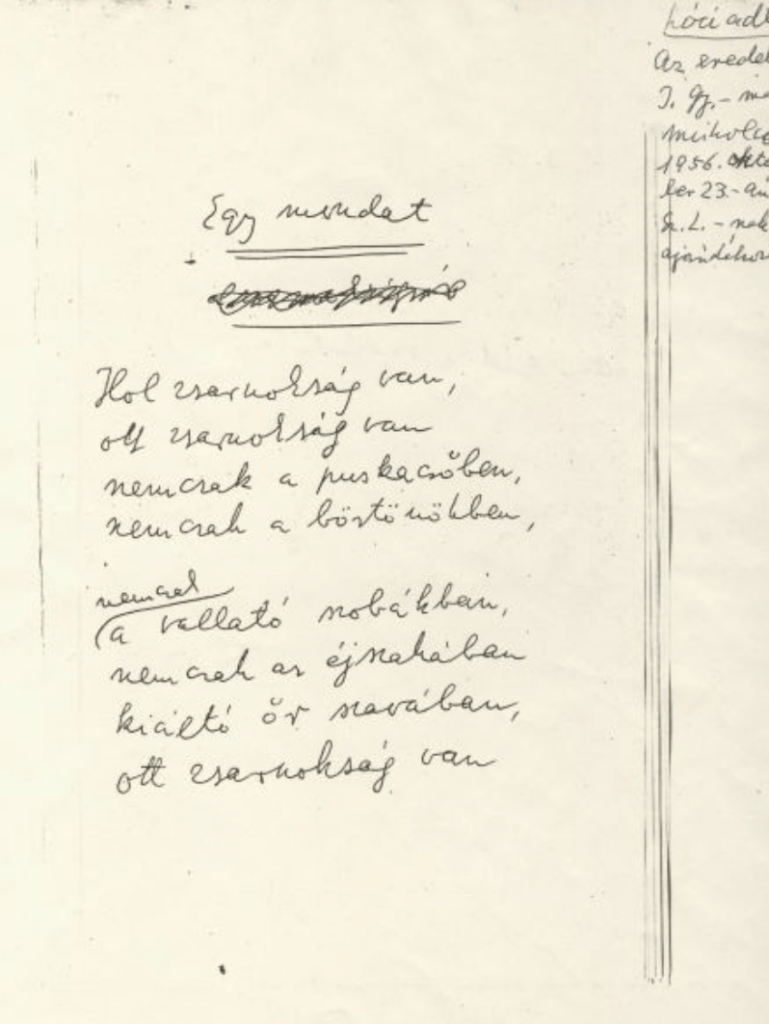 Egy mondat
Hol zsarnokság van,
ott zsarnokság van
nemcsak a puskacsőben,
nemcsak a börtönökben,
nemcsak
a vallató szobákban,
nemcsak az éjszakában
kiáltó őr szavában,
ott zsarnokság van
Az
I. Gy. –
1956.
ber 23.-
Sz. L. – nek